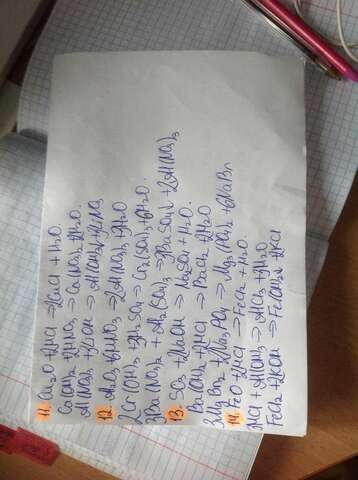 11. Cu₂O + 2HCl → 2CuCl + H₂O
Ca(OH)₂ + 2HNO₃ → Ca(NO₃)₂ + 2H₂O.
Al(NO₃)₃ + LiOH → Al(OH)₃↓ + LiNO₃
12. Al₂O₃ + 6HNO₃ → 2Al(NO₃)₃ + 3H₂O
2Cr(OH)₃ + 3H₂SO₄ → Cr₂(SO₄)₃ + 6H₂O.
3Ba(NO₃)₂ + Al₂(SO₄)₃ → 3BaSO₄↓ + 2Al(NO₃)₃
13. SO₃ + 2NaOH → Na₂SO₄ + H₂O.
Ba(OH)₂ + 2HCl → BaCl₂ + 2H₂O
3MgBr₂ + 2Na₃PO₄ → Mg₃(PO₄)₂ + 6NaBr
14. FeO + 2HCl → FeCl₂ + H₂O.
3HCl + Al(OH)₃ → AlCl₃ + 3H₂O.
FeCl₂ + 2KOH → Fe(OH)₂↓ + 2KCl